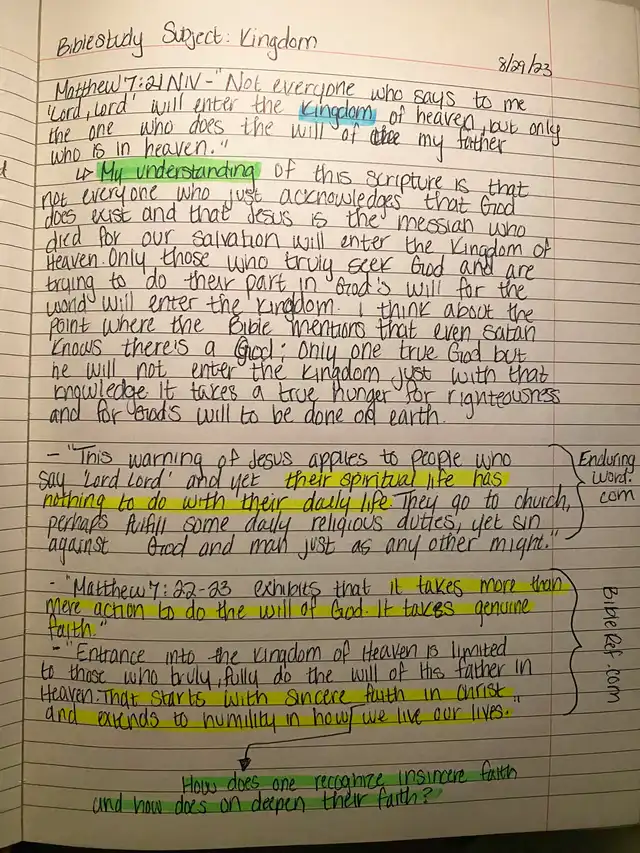 Biblestudy Subject: Kingdom
8/29/23
Matthew 7:21 NIV - "Not everyone who says to me
'Lord, Lord' will enter the Kingdom of heaven, but only
the one who does the will of my father
who is in heaven."
↳ My understanding of this scripture is that
not everyone who just acknowledges that God
does exist and that Jesus is the messiah who
died for our salvation will enter the Kingdom of
Heaven. Only those who truly seek God and are
trying to do their part in God's will for the
world will enter the Kingdom. I think about the
point where the Bible mentions that even satan
knows there's a God; Only one true God but
he will not enter the Kingdom just with that
knowledge. It takes a true hunger for righteousness
and for God's will to be done on earth.
- "This warning of Jesus applies to people who
say 'Lord Lord' and yet their spiritual life has
nothing to do with their daily life. They go to church,
perhaps fulfill some daily religious duties, yet sin
against God and man just as any other might."
Enduring
word.
com
- "Matthew 7:22-23 exhibits that it takes more than
mere action to do the will of God. It takes genuine
faith."
- "Entrance into the Kingdom of Heaven is limited
to those who truly, fully do the will of His father in
Heaven. That starts with sincere faith in Christ
and extends to humility in how we live our lives."
BibleRef.com
How does one recognize insincere faith
and how does on deepen their faith?